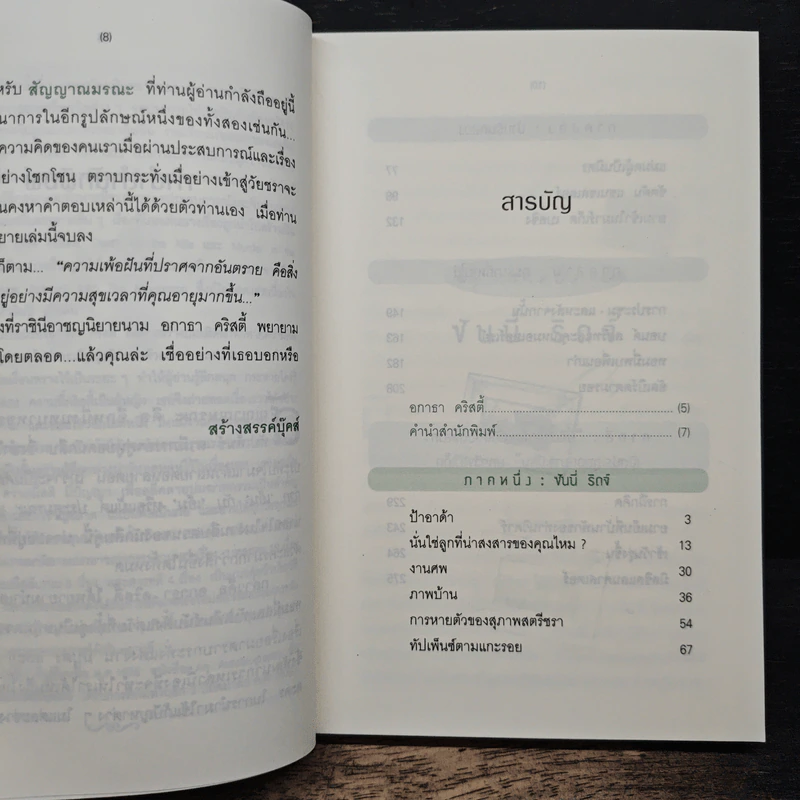 (8)
หรับ สัญญาณมรณะ ที่ท่านผู้อ่านกำลังถืออยู่นี้
นาการในอีกรูปลักษณ์หนึ่งของทั้งสองเช่นกัน...
ความคิดของคนเราเมื่อผ่านประสบการณ์และเรื่อง
อย่างโชกโชน ตราบกระทั่งเมื่อย่างเข้าสู่วัยชราจะ
นคงหาคำตอบเหล่านี้ได้ด้วยตัวท่านเอง เมื่อท่าน
ยายเล่มนี้จบลง
ก็ตาม... “ความเพ้อฝันที่ปราศจากอันตราย คือสิ่ง
ยู่อย่างมีความสุขเวลาที่คุณอายุมากขึ้น...”
งที่ราชินีอาชญนิยายนาม อกาธา คริสตี้ พยายาม
โดยตลอด...แล้วคุณล่ะ เชื่ออย่างที่เธอบอกหรือ
สร้างสรรค์บุ๊คส์
สารบัญ
อกาธา คริสตี้ (5)
คำนำสำนักพิมพ์ (7)
ภาคหนึ่ง : ซันนี่ ริดจ์
ป้าอาด้า 3
นั่นใช่ลูกที่น่าสงสารของคุณไหม ? 13
งานศพ 30
ภาพบ้าน 36
การหายตัวของสุภาพสตรีชรา 54
ทัปเพ็นซ์ตามแกะรอย 67